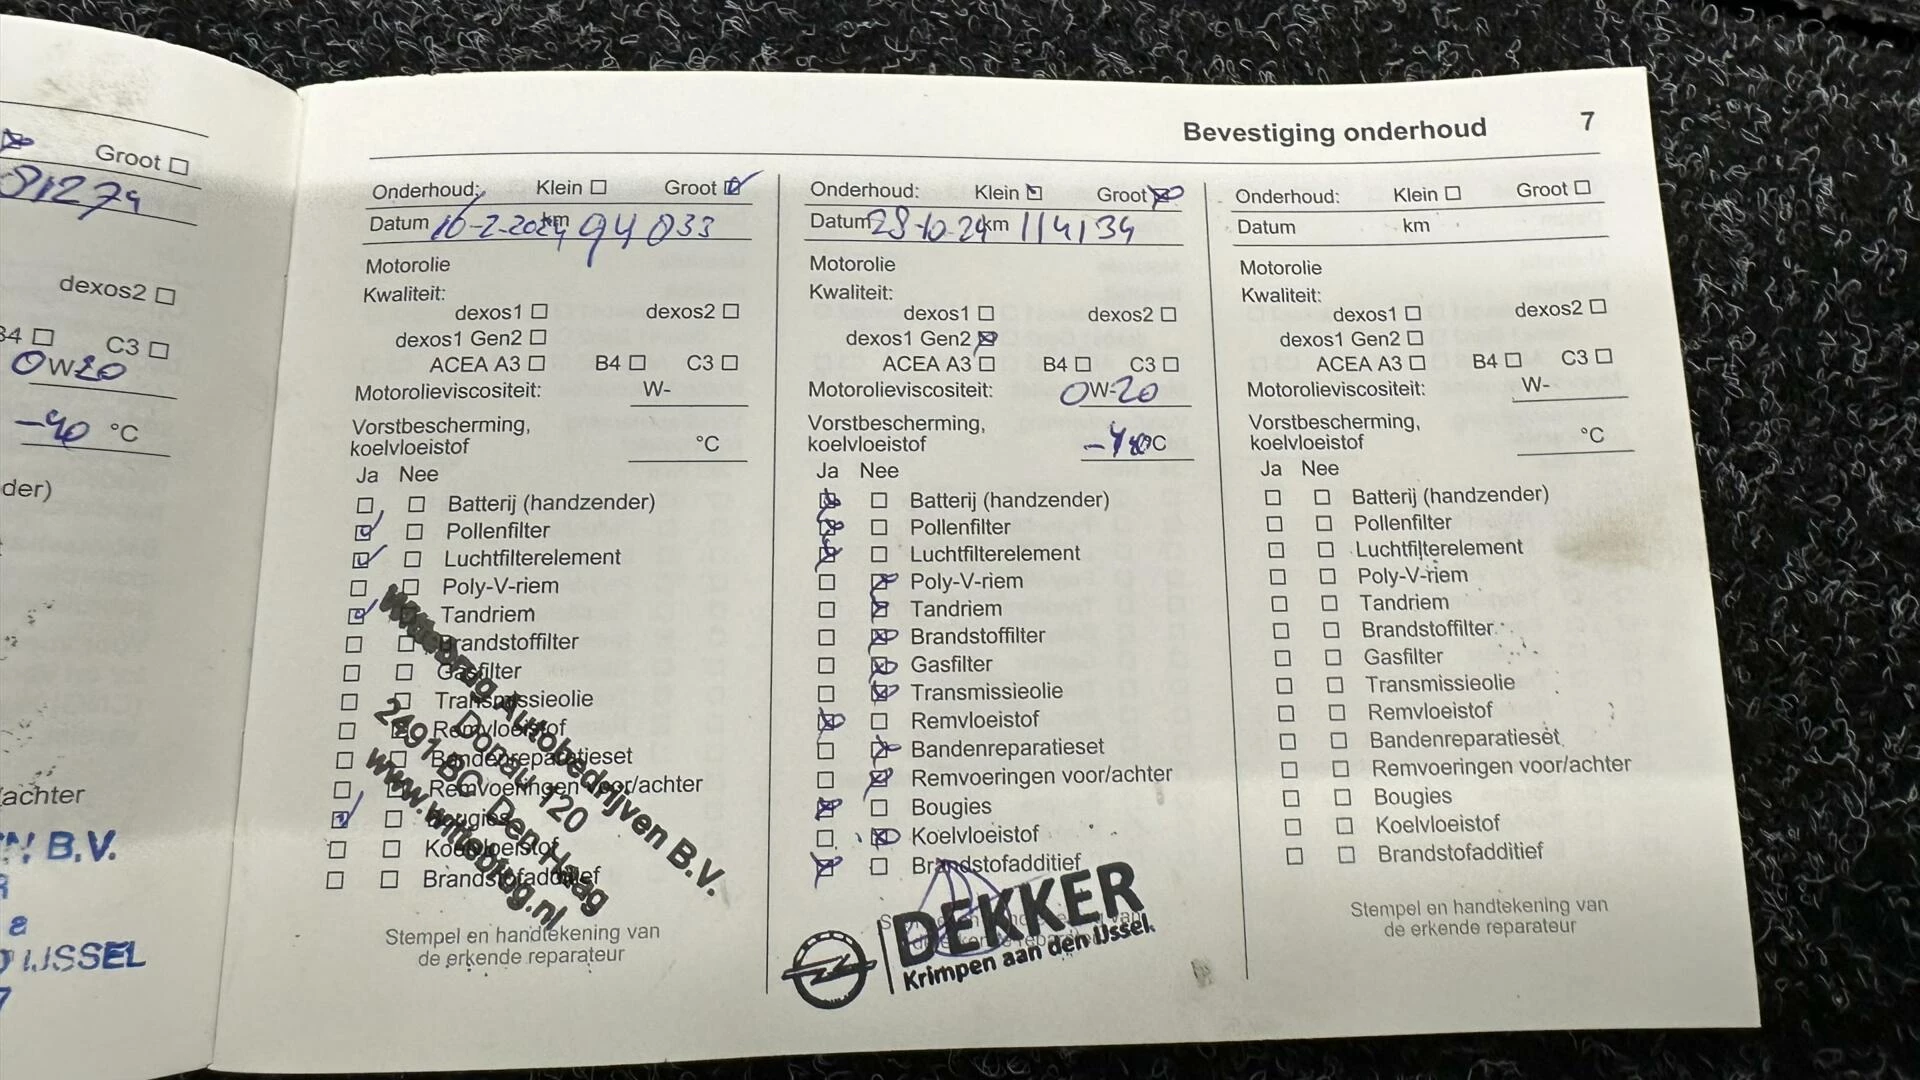 Groot
81274
dexos2
B4 C3
0W20
-40 °C
der)
/achter
N B.V.
a
IJSSEL
7
Bevestiging onderhoud 7
Onderhoud: Klein Groot
Datum 16-2-2024 km 94033
Motorolie
Kwaliteit:
dexos1 dexos2
dexos1 Gen2
ACEA A3 B4 C3
Motorolieviscositeit: W-
Vorstbescherming,
koelvloeistof °C
Ja Nee
Batterij (handzender)
Pollenfilter
Luchtfilterelement
Poly-V-riem
Tandriem
Brandstoffilter
Gasfilter
Transmissieolie
Remvloeistof
Bandenreparatieset
Remvoeringen voor/achter
Bougies
Koelvloeistof
Brandstofadditief
Wittebrug Autobedrijven B.V.
Donau 120
2491 BC Den Haag
www.wittebrug.nl
Stempel en handtekening van
de erkende reparateur
Onderhoud: Klein Groot
Datum 28-10-24 km 114134
Motorolie
Kwaliteit:
dexos1 dexos2
dexos1 Gen2
ACEA A3 B4 C3
Motorolieviscositeit: 0W-20
Vorstbescherming,
koelvloeistof °C
Ja Nee
Batterij (handzender)
Pollenfilter
Luchtfilterelement
Poly-V-riem
Tandriem
Brandstoffilter
Gasfilter
Transmissieolie
Remvloeistof
Bandenreparatieset
Remvoeringen voor/achter
Bougies
Koelvloeistof
Brandstofadditief
DEKKER
Krimpen aan den IJssel
Onderhoud: Klein Groot
Datum km
Motorolie
Kwaliteit:
dexos1 dexos2
dexos1 Gen2
ACEA A3 B4 C3
Motorolieviscositeit: W-
Vorstbescherming,
koelvloeistof °C
Ja Nee
Batterij (handzender)
Pollenfilter
Luchtfilterelement
Poly-V-riem
Tandriem
Brandstoffilter
Gasfilter
Transmissieolie
Remvloeistof
Bandenreparatieset
Remvoeringen voor/achter
Bougies
Koelvloeistof
Brandstofadditief
Stempel en handtekening van
de erkende reparateur